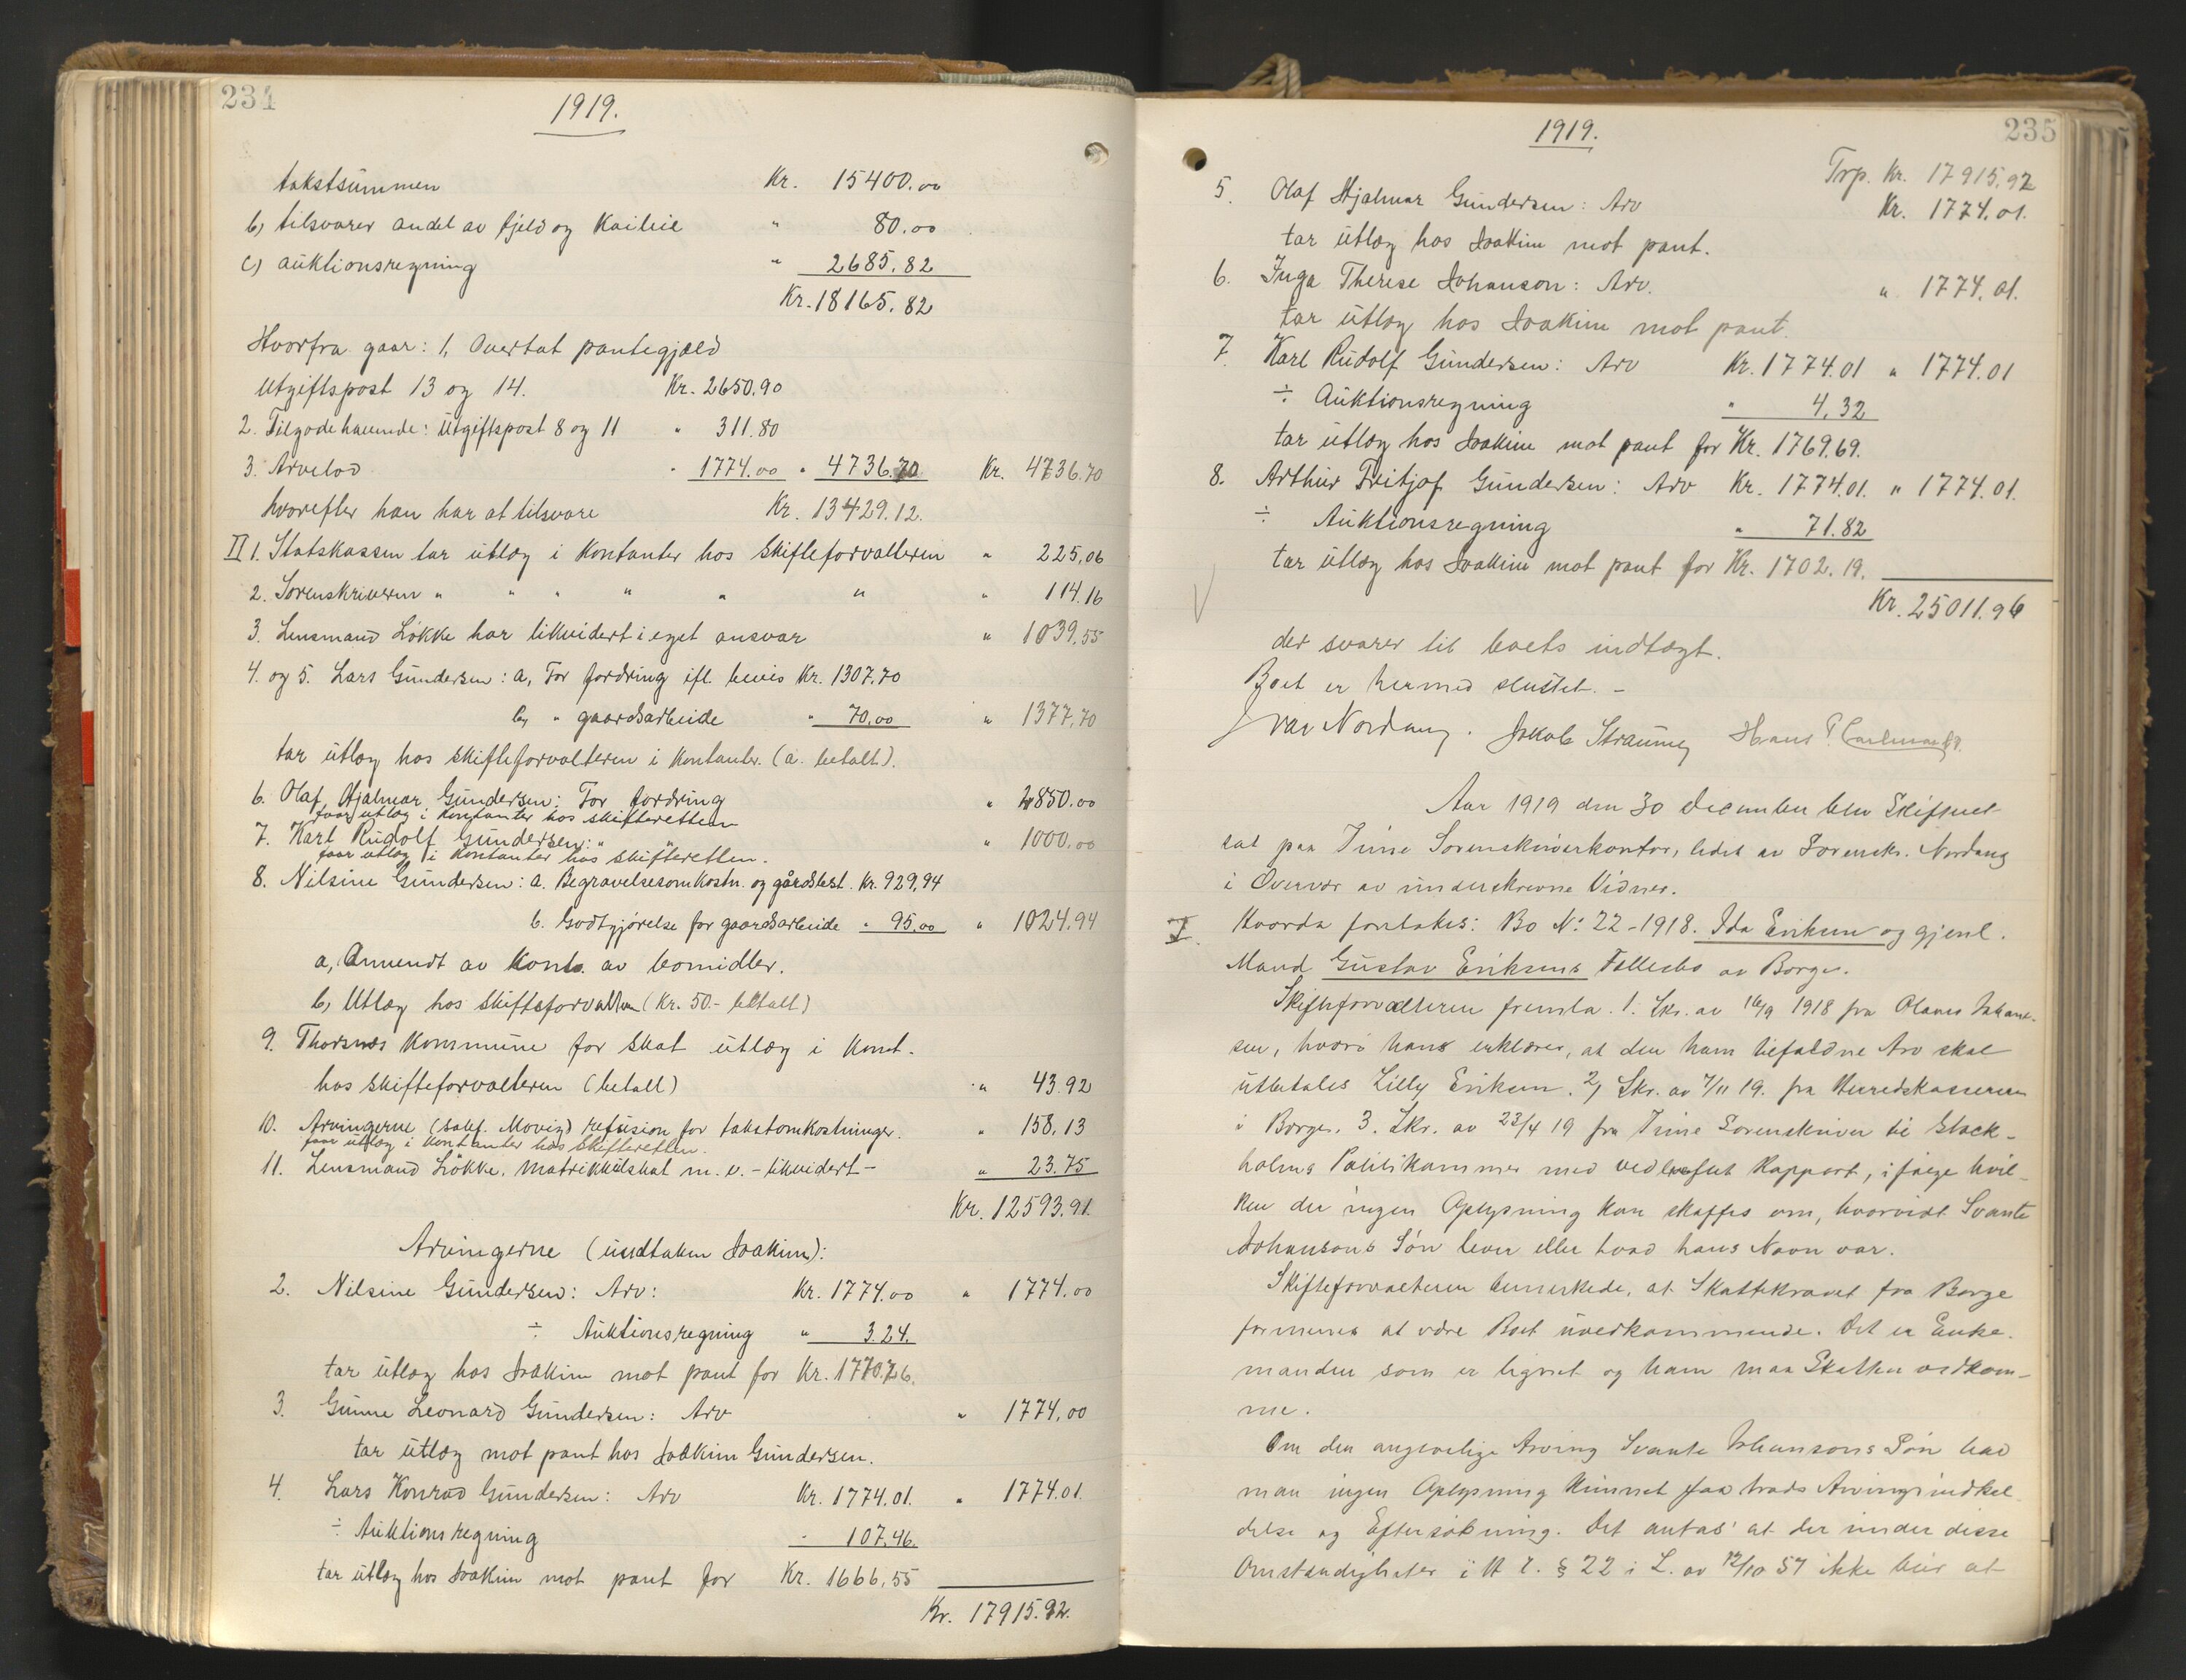 234
1919.
takstsummen Kr. 15400.00
b) tilsvarer andel av fjeld og " 80.00
c) auktionsregning " 2685.82
Kr. 18165.82
Hvorfra gaar: 1, Overtat pantegjæld
utgiftspost 13 og 14. Kr. 2650.90
2. Tilgodehavende: utgiftspost 8 og 11 " 311.80
3. Arvelod " 1774.00 " 4736.70 Kr. 4736.70
hvorefter han har at tilsvare Kr. 13429.12.
II 1. Statskassen tar utlæg i Kontanter hos Skifteforvalteren " 225,06
2. Sorenskriveren " " " " " " " 114.16
3. Lensmand Løkke har likvidert i eget ansvar " 1039,55
4. og 5. Lars Gundersen: a, For fordring ifl. bevis Kr. 1307.70
b, " gaardsarbeide " 70,00 " 1377,70
tar utlæg hos skifteforvalteren i Kontanter. (a. betalt).
6. Olaf Hjalmar Gundersen: For fordring " 2850.00
faar utlæg i Kontanter hos skifteretten
7. Karl Rudolf Gundersen: " " " 1000.00
faar utlæg i Kontanter hos skifteretten.
8. Nilsine Gundersen: a. Begravelsesomkostn. og gårdsbest. Kr. 929,94
b. Godtgjørelse for gaardsarbeide " 95,00 " 1024.94
a, Anvendt av Konto av bomidler.
b, Utlæg hos skifteforvalteren (Kr. 50.- betalt)
9. Thorsnes Kommune for skat utlæg i Kont.
hos skifteforvalteren (betalt) " 43.92
10. Arvingerne (sakf. Movig) refusion for takstomkostninger. " 158,13
faar utlæg i Kontanter hos Skifteretten.
11. Lensmand Løkke. Matrikkulskat m. v. - likvidert - " 23.75
Kr. 12593.91.
Arvingerne (undtaken Joakim):
2. Nilsine Gundersen: Arv: Kr. 1774.00 " 1774.00
÷ Auktionsregning " 3.24.
tar utlæg hos Joakim mot pant for Kr. 1770.76.
3. Gunne Leonard Gundersen: Arv " 1774,00
tar utlæg mot pant hos Joakim Gundersen.
4. Lars Konrad Gundersen: Arv Kr. 1774.01. " 1774.01.
÷ Auktionsregning " 107.46.
tar utlæg hos Joakim mot pant for Kr. 1666,55
Kr. 17915.92.
235
1919.
Trp. Kr. 17915.92
5. Olaf Hjalmar Gundersen: Arv Kr. 1774.01.
tar utlæg hos Joakim mot pant.
6. Inga Therese Johanson: Arv. " 1774.01.
tar utlæg hos Joakim mot pant.
7. Karl Rudolf Gundersen: Arv Kr. 1774.01 " 1774.01
÷ Auktionsregning " 4,32
tar utlæg hos Joakim mot pant for Kr. 1769.69.
8. Arthur Fritjof Gundersen: Arv Kr. 1774.01. " 1774.01.
÷ Auktionsregning " 71.82
tar utlæg hos Joakim mot pant for Kr. 1702.19.
Kr. 25011.96
der svarer til boets indtægt.
Boet er hermed sluttet. -
Ivar Nordang. Jakob Straume Hans P.
Aar 1919 den 30 December blev Skifteret
sat paa Tune Sorenskriverkontor, ledet av Sorenskr. Nordang
i Overvær av underskrevne Vidner.
I. Hvorda foretakes: Bo No: 22-1918. Ida Eriksen og gjenl.
Mand Gustav Eriksens Fællesbo av Borge.
Skifteforvalteren fremla. 1. Skr. av 16/9 1918 fra Olaves Johan-
sen, hvori hans erklærer, at den ham tilfaldne Arv skal
utbetales Lilly Eriksen. 2, Skr. av 7/11 19. fra Herredskassereren
i Borge. 3. Skr. av 23/4 19 fra Tune Sorenskriver til Stock-
holms Politikammer med vedheftet Rapport, ifølge hvil-
ken der ingen Oplysning kan skaffes om, hvorvidt Svante
Johansons Søn lever eller hvad hans Navn var.
Skifteforvalteren bemerkede, at Skattekravet fra Borge
formenes at være Boet uvedkommende. Det er Enke-
manden som er lignet og ham maa Skatten vedkom-
me.
Om den angivelige Arving Svante Johansons Søn har
man ingen Oplysning kunnet faa trods Arvingsindkal-
delse og Eftersøkning. Det antas at der under disse
Omstændigheter i H. t. § 22 i L. av 12/10 57 ikke blir at